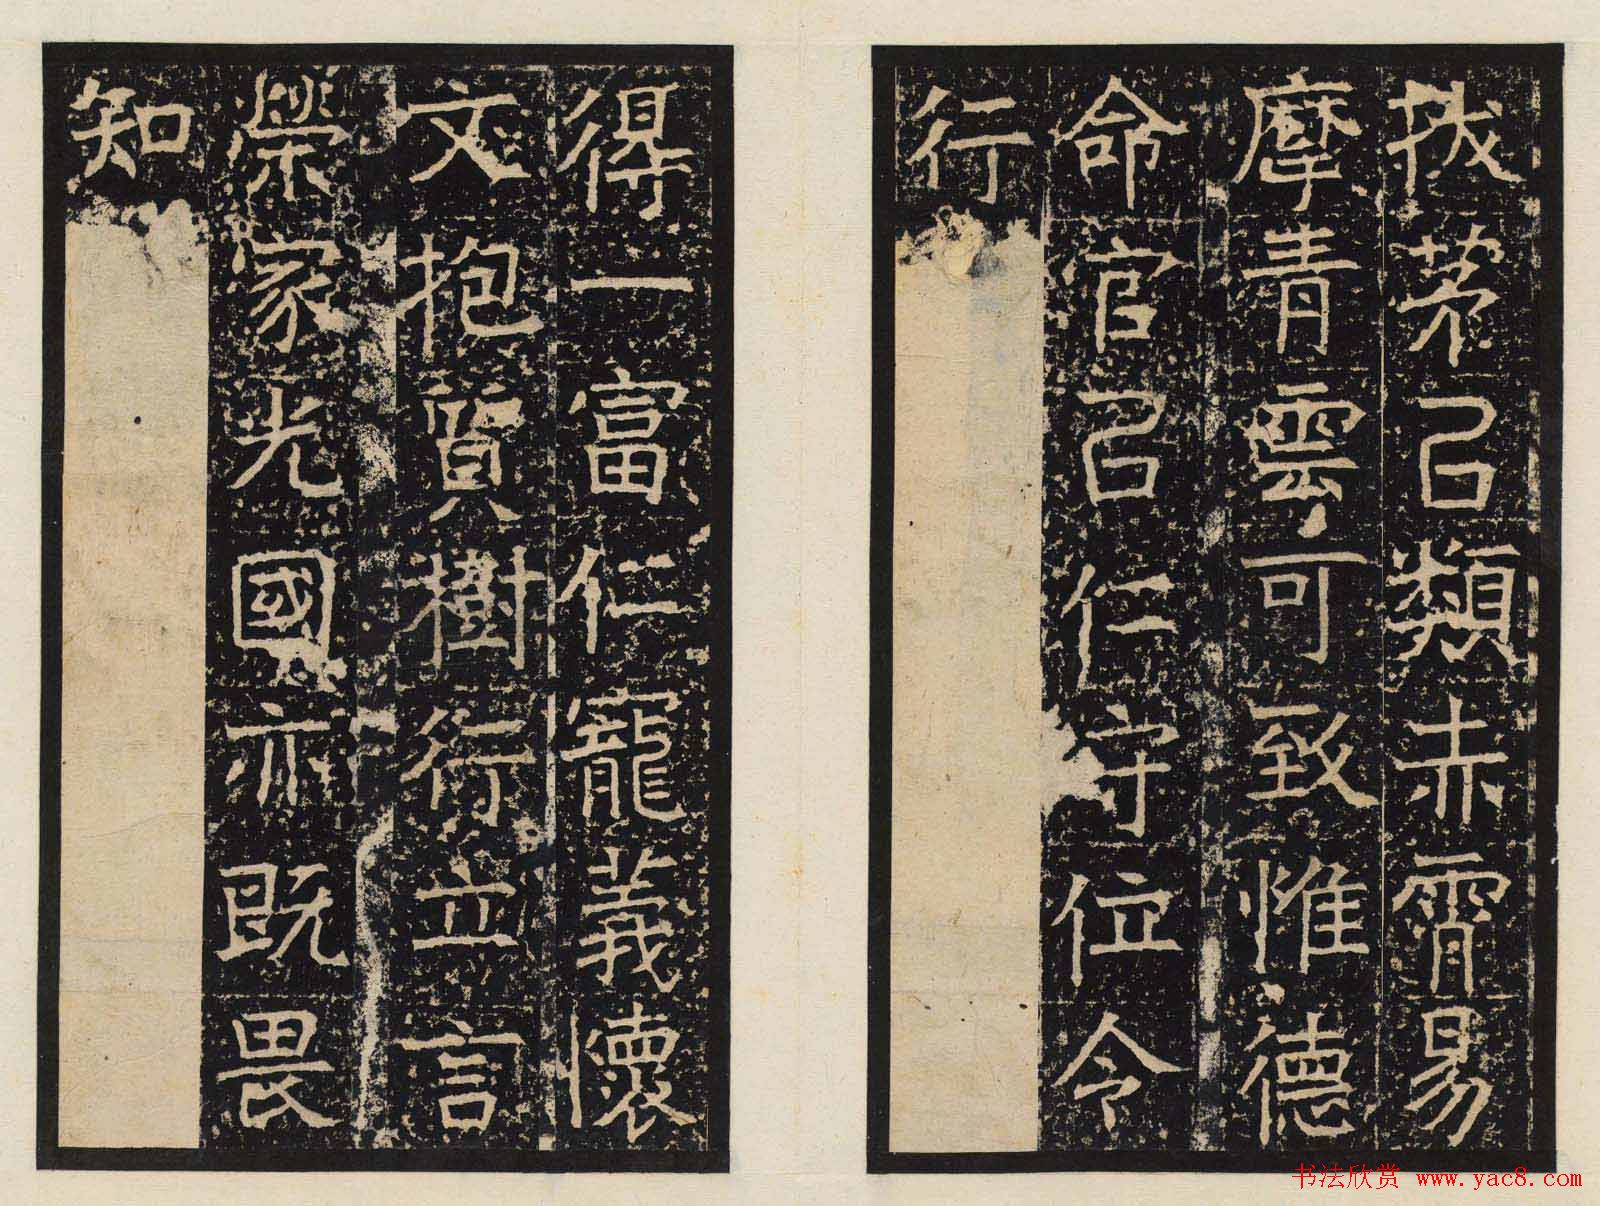 拔茅㠯類赤霄易
摩青雲可致惟德
命官㠯仁守位令
行
得一富仁寵義懷
文抱質樹行立言
榮家光國亦既畏
知
书法欣赏 www.yac8.com